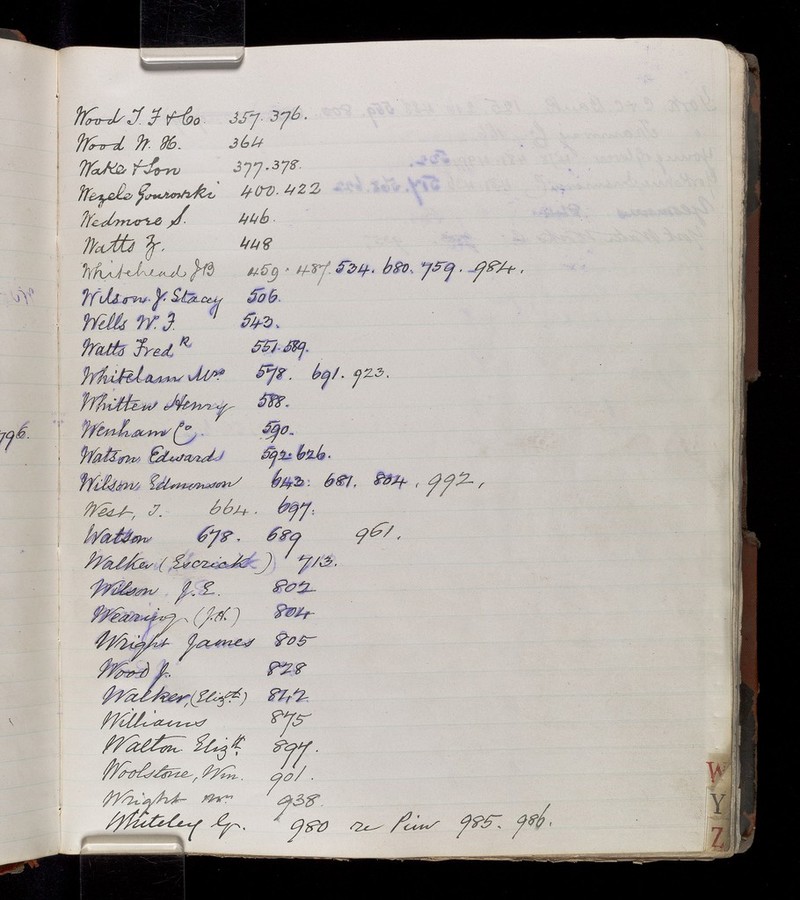 Wood T. F & Co 357. 376.
Wood W. H. 364
Wake & Son 377. 378.
Wezele Gourowski 400. 422
Wedmore S. 446.
Watts F. 448
Whitehead JB 459. 487. 534. 680. 759. 984.
Wilson J. Stacey 506.
Wells W. F. 543.
Watts Fredk 551. 589.
Whitelam Mrs 578. 691. 923.
Whitten Henry 588.
Wenham Co. 590.
Watson Edward 592. 626.
Wilson Edmonson 643. 681. 804. 992.
West, J. 664. 697.
Watson 678. 689 961.
Walker (Escrick) 713.
Wilson J. E. 802
Wearing (J.H.) 804
Wright James 805
Wood J. 828
Walker, (Elizth) 842
Williams 875
Walton Elizth 897.
Woolstone, Wm. 901.
Wright 938
Whiteley G. 980 re 985. 986.
796.
W
Y
Z